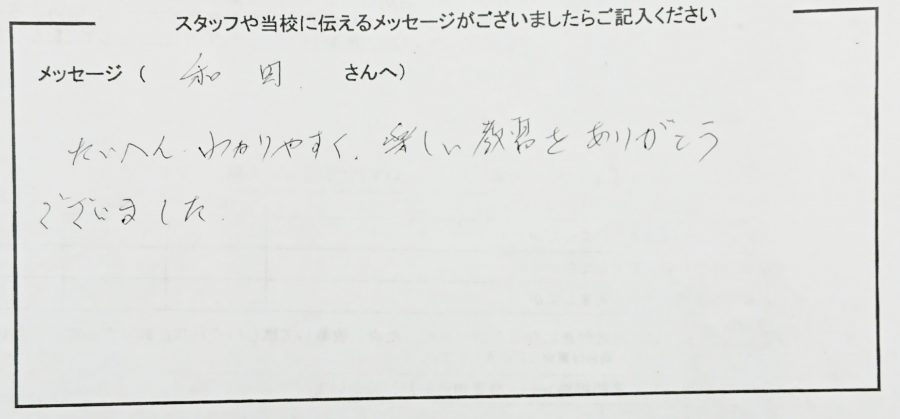 スタッフや当校に伝えるメッセージがございましたらご記入ください
メッセージ ( 和田 さんへ)
たいへん わかりやすく、楽しい教習をありがとう
ございました。